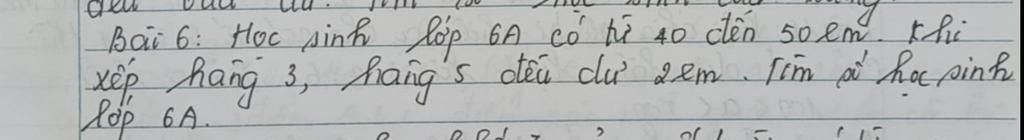 Bài 6: Học sinh lớp 6A có từ 40 đến 50 em. Khi
xếp hàng 3, hàng 5 đều dư 2 em. Tìm số học sinh
lớp 6A.